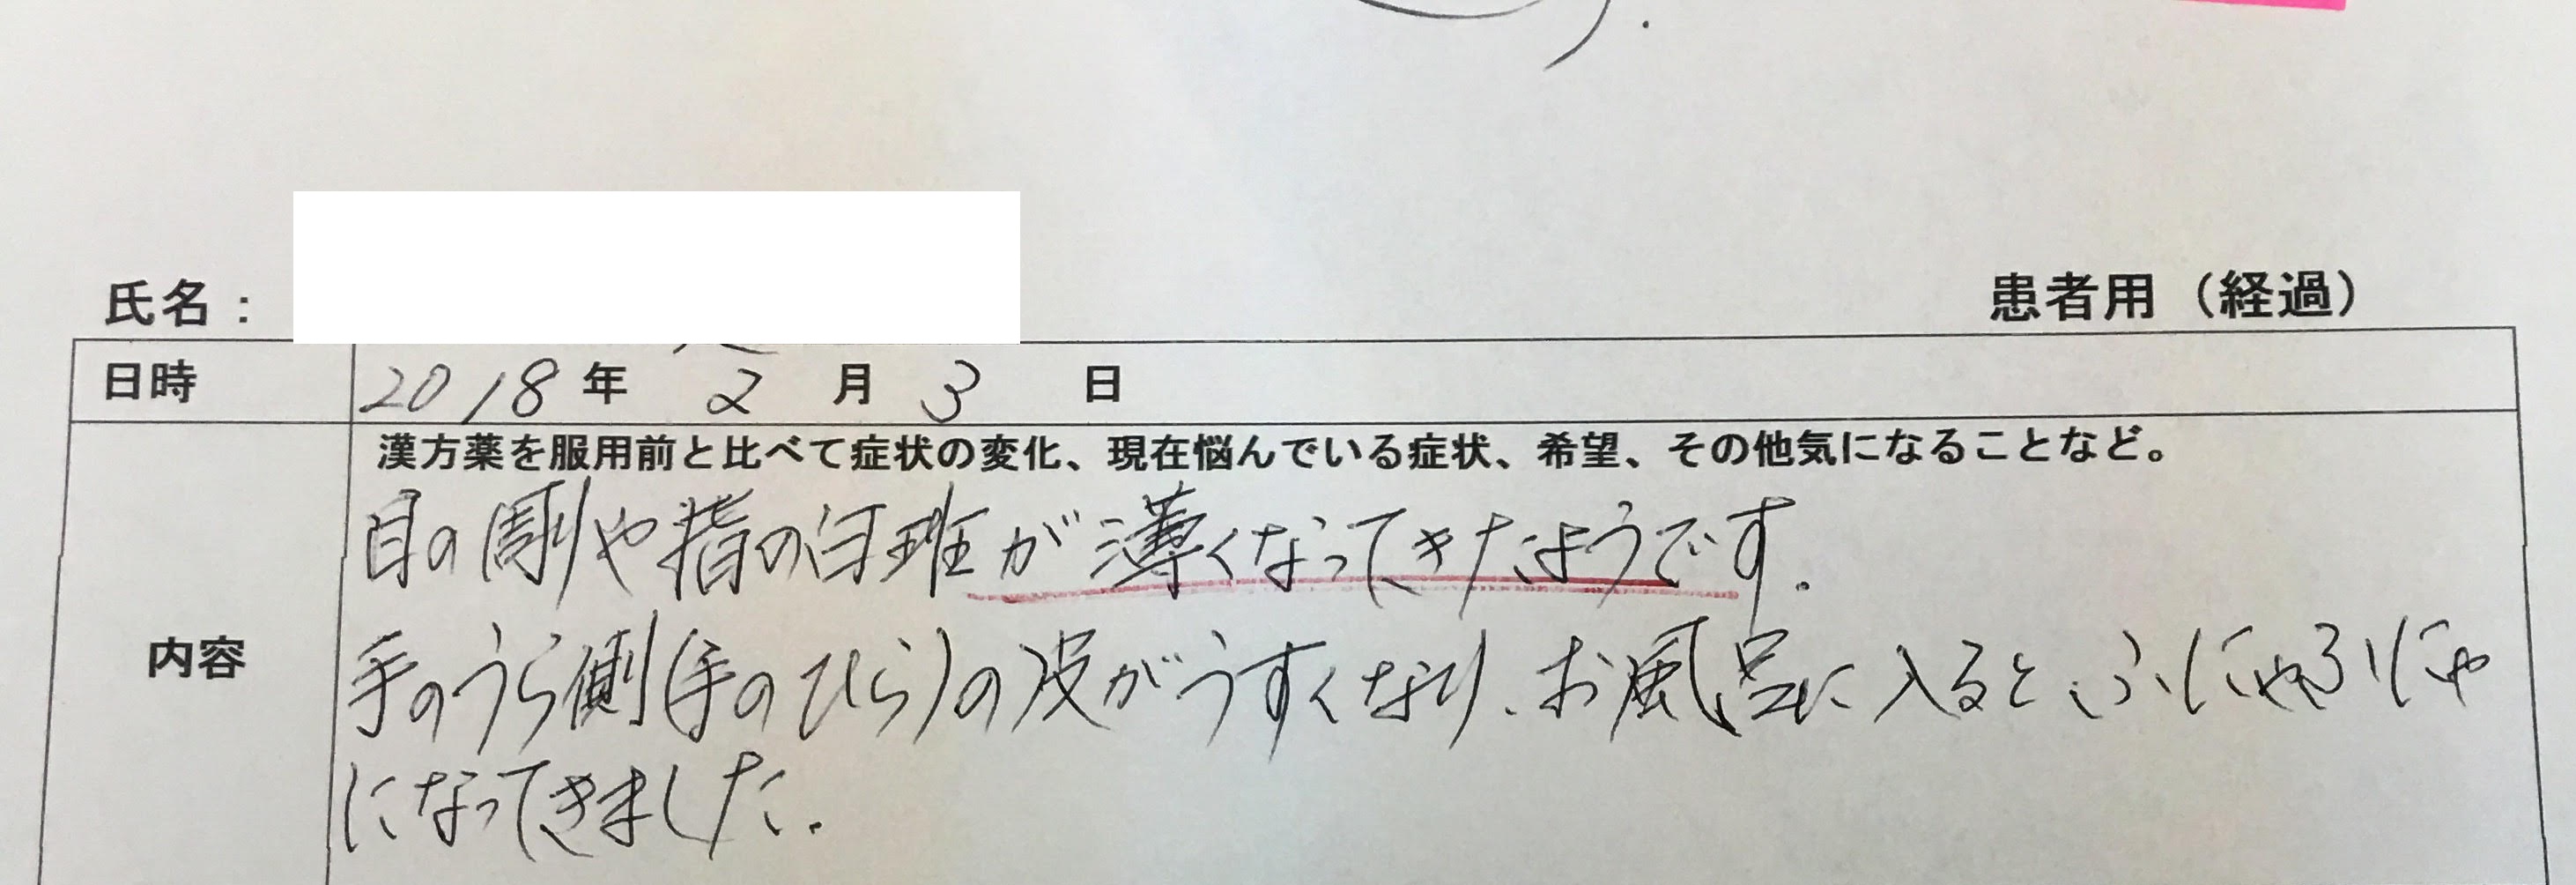 氏名：
患者用（経過）
日時 2018年 2月 3日
漢方薬を服用前と比べて症状の変化、現在悩んでいる症状、希望、その他気になることなど。
内容
目の周りや指の白斑が薄くなってきたようです.
手のうら側(手のひら)の皮がうすくなり、お風呂に入ると、ふにゃふにゃ
になってきました.